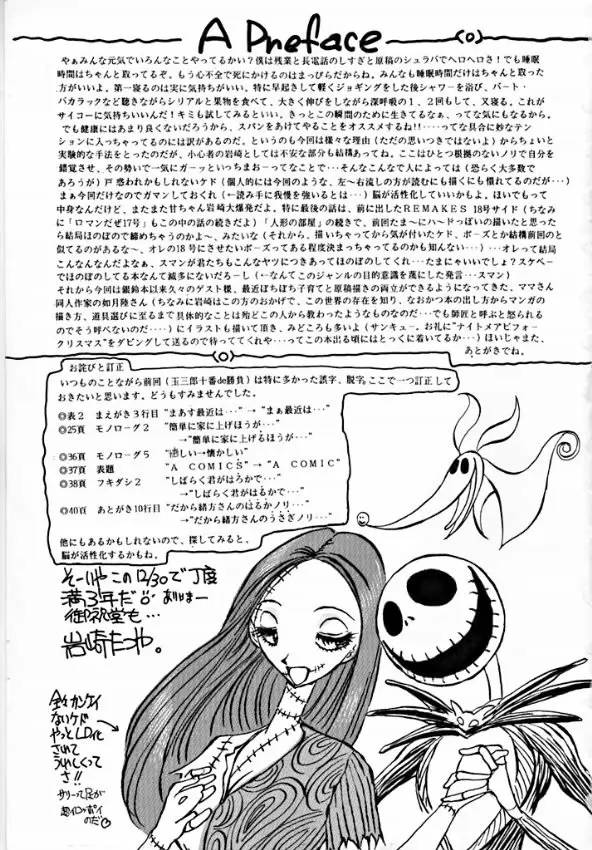 A Preface
やぁみんな元気でいろんなことやってるかい？僕は残業と長電話のしすぎと原稿のシュラバでヘロヘロさ！でも睡眠
時間はちゃんと取ってるぞ。もう心不全で死にかけるのはまっぴらだからね。みんなも睡眠時間だけはちゃんと取った
方がいいよ。第一寝るのは実に気持ちがいい。特に早起きして軽くジョギングをした後シャワーを浴び、バート・
バカラックなど聴きながらシリアルと果物を食べて、大きく伸びをしながら深呼吸の１、２回もして、又寝る。これが
サイコーに気持ちいいんだ！キミも試してみるといい。きっとこの瞬間のために生きてるなぁ、って気にもなるから。
でも健康にはあまり良くないだろうから、スパンをあけてやることをオススメするね！！‥‥って具合に妙なテン
ションに入っちゃってるのには訳があるのだ。というのも今回は様々な理由（ただの思いつきではないよ）からちょいと
実験的な手法をとったのだが、小心者の岩崎としては不安な部分も結構あってね。ここはひとつ根拠のないノリで自分を
錯覚させ、その勢いで一気にガーッといっちまおーってなことで‥‥そんなこんなで人によっては（恐らく大多数で
あろうが）戸惑われかもしれないケド（個人的には今回のような、左〜右流しの方が読むにも描くにも慣れてるのだが…）
まぁ今回だけなのでガマンしておくれ（←読み手に我慢を強いるとは…）脳が活性化していいかもよ。ほいでもって
中身なんだけど、またまた甘ちゃん岩崎大爆発だよ。特に最後の話は、前に出したＲＥＭＡＫＥＳ 18号サイド（ちなみ
に「ロマンだぜ17号」もこの中の話の続きだよ）「人形の部屋」の続きで、前回たま〜にハードっぽいの描いたと思った
ら結局ほのぼので締めちゃうのかよ〜、みたいなくそれから、描いちゃってから気が付いたケド、ポーズとか結構前回のと
似てるのがあるな〜、オレの18号にさせたいポーズってある程度決まっちゃってるのかも知んない）…オレって結局
こんなんなんだよなぁ、スマンが君たちもこんなヤツにつきあってほのぼのしてくれ…たまにゃいいでしょ？スケベー
でほのぼのしてる本なんて滅多にないだろーし（←なんてこのジャンルの目的意識を蔑にした発言…スマン）
それから今回は銀鈴本以来久々のゲスト様、最近ぼちぼち子育てと原稿描きの両立ができるようになってきた、ママさん
同人作家の如月陸さん（ちなみに岩崎はこの方のおかげで、この世界の存在を知り、なおかつ本の出し方からマンガの
描き方、道具選びに至るまで具体的なことは殆どこの人から教わったようなものなのだ…でも師匠と呼ぶと怒られる
のでそう呼べないのだ‥‥）にイラストも描いて頂き、みどころも多いよ（サンキュー。お礼に“ナイトメアビフォー
クリスマス”をダビングして送るので待っててくれや…ってこの本出る頃にはとっくに着いてるか…）ほいじゃまた、
あとがきでね。
お詫びと訂正
いつものことながら前回（玉三郎十番de勝負）は特に多かった誤字、脱字。ここで一つ訂正して
おきたいと思います。どうもすみませんでした。
◎表２　まえがき３行目　“まあす最近は…”→“まぁ最近は…”
◎25頁　モノローグ２　“簡単に家に上げほうが…”
→“簡単に家に上げるほうが…”
◎36頁　モノローグ５　“懐しい→懐かしい”
◎37頁　表題　“Ａ ＣＯＭＩＣＳ”→“Ａ ＣＯＭＩＣ”
◎38頁　フキダシ２　“しばらく君がはろかで…”
→“しばらく君がはるかで…”
◎40頁　あとがき10行目　“だから緒方さんのはるかノリ…”
→“だから緒方さんのうさぎノリ…”
他にもあるかもしれないので、探してみると、
脳が活性化するかもね。
そーいやこの12/30で丁度
満3年だ
岩崎たつや。
全々カンケイ
ないケド
やっとLD化
されて
うれしくって
さ!!
サリーって足が
超イロッポイ
のだ♡